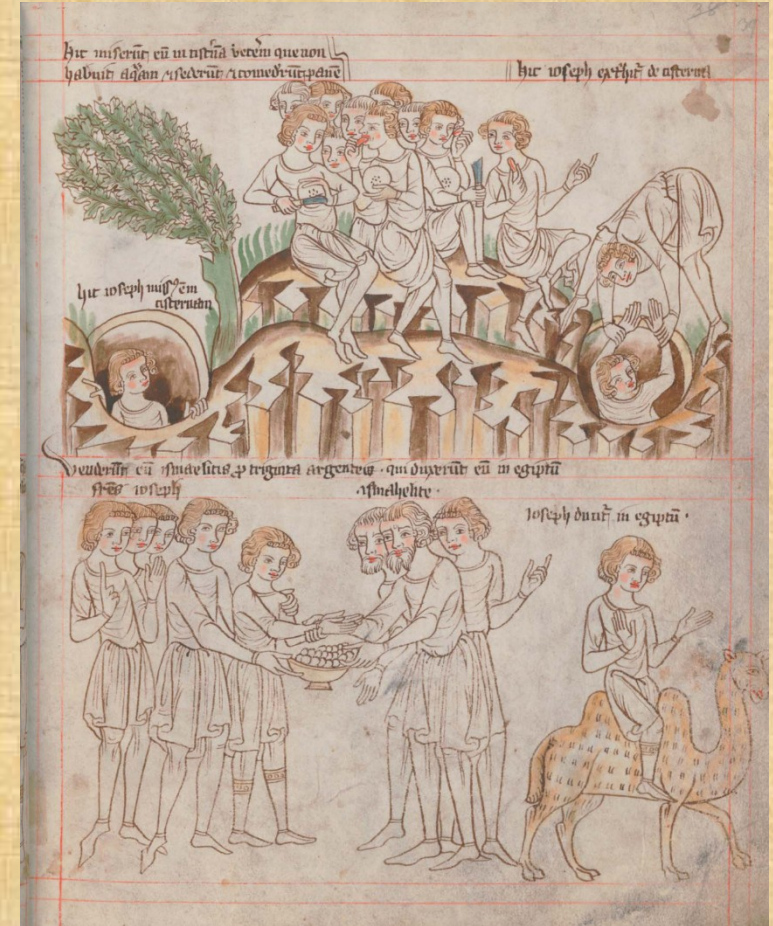 hic miserūt eū in cistnā veterē que non
habuit aquam ⁊ sederūt ⁊ comedrūt panē
hic ioseph exthit̄ de cisterna
hic ioseph missꝰ ē in
cisternam
Venderūt eū ismaelitis ꝓ triginta argenteis · qui duxerūt eū in egiptū
fr̄es ioseph
ismahelite ·
Ioseph ducit̄ in egiptū ·